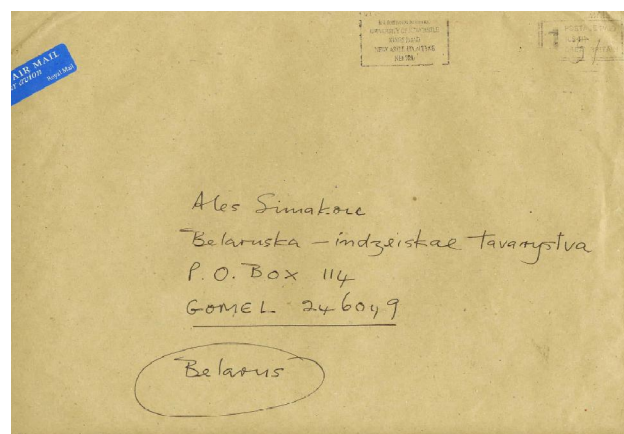 AIR MAIL
Royal Mail
Ales Simakou
Belaruska - indzeiskae Tavarystva
P.O. Box 114
GOMEL 246049
Belarus